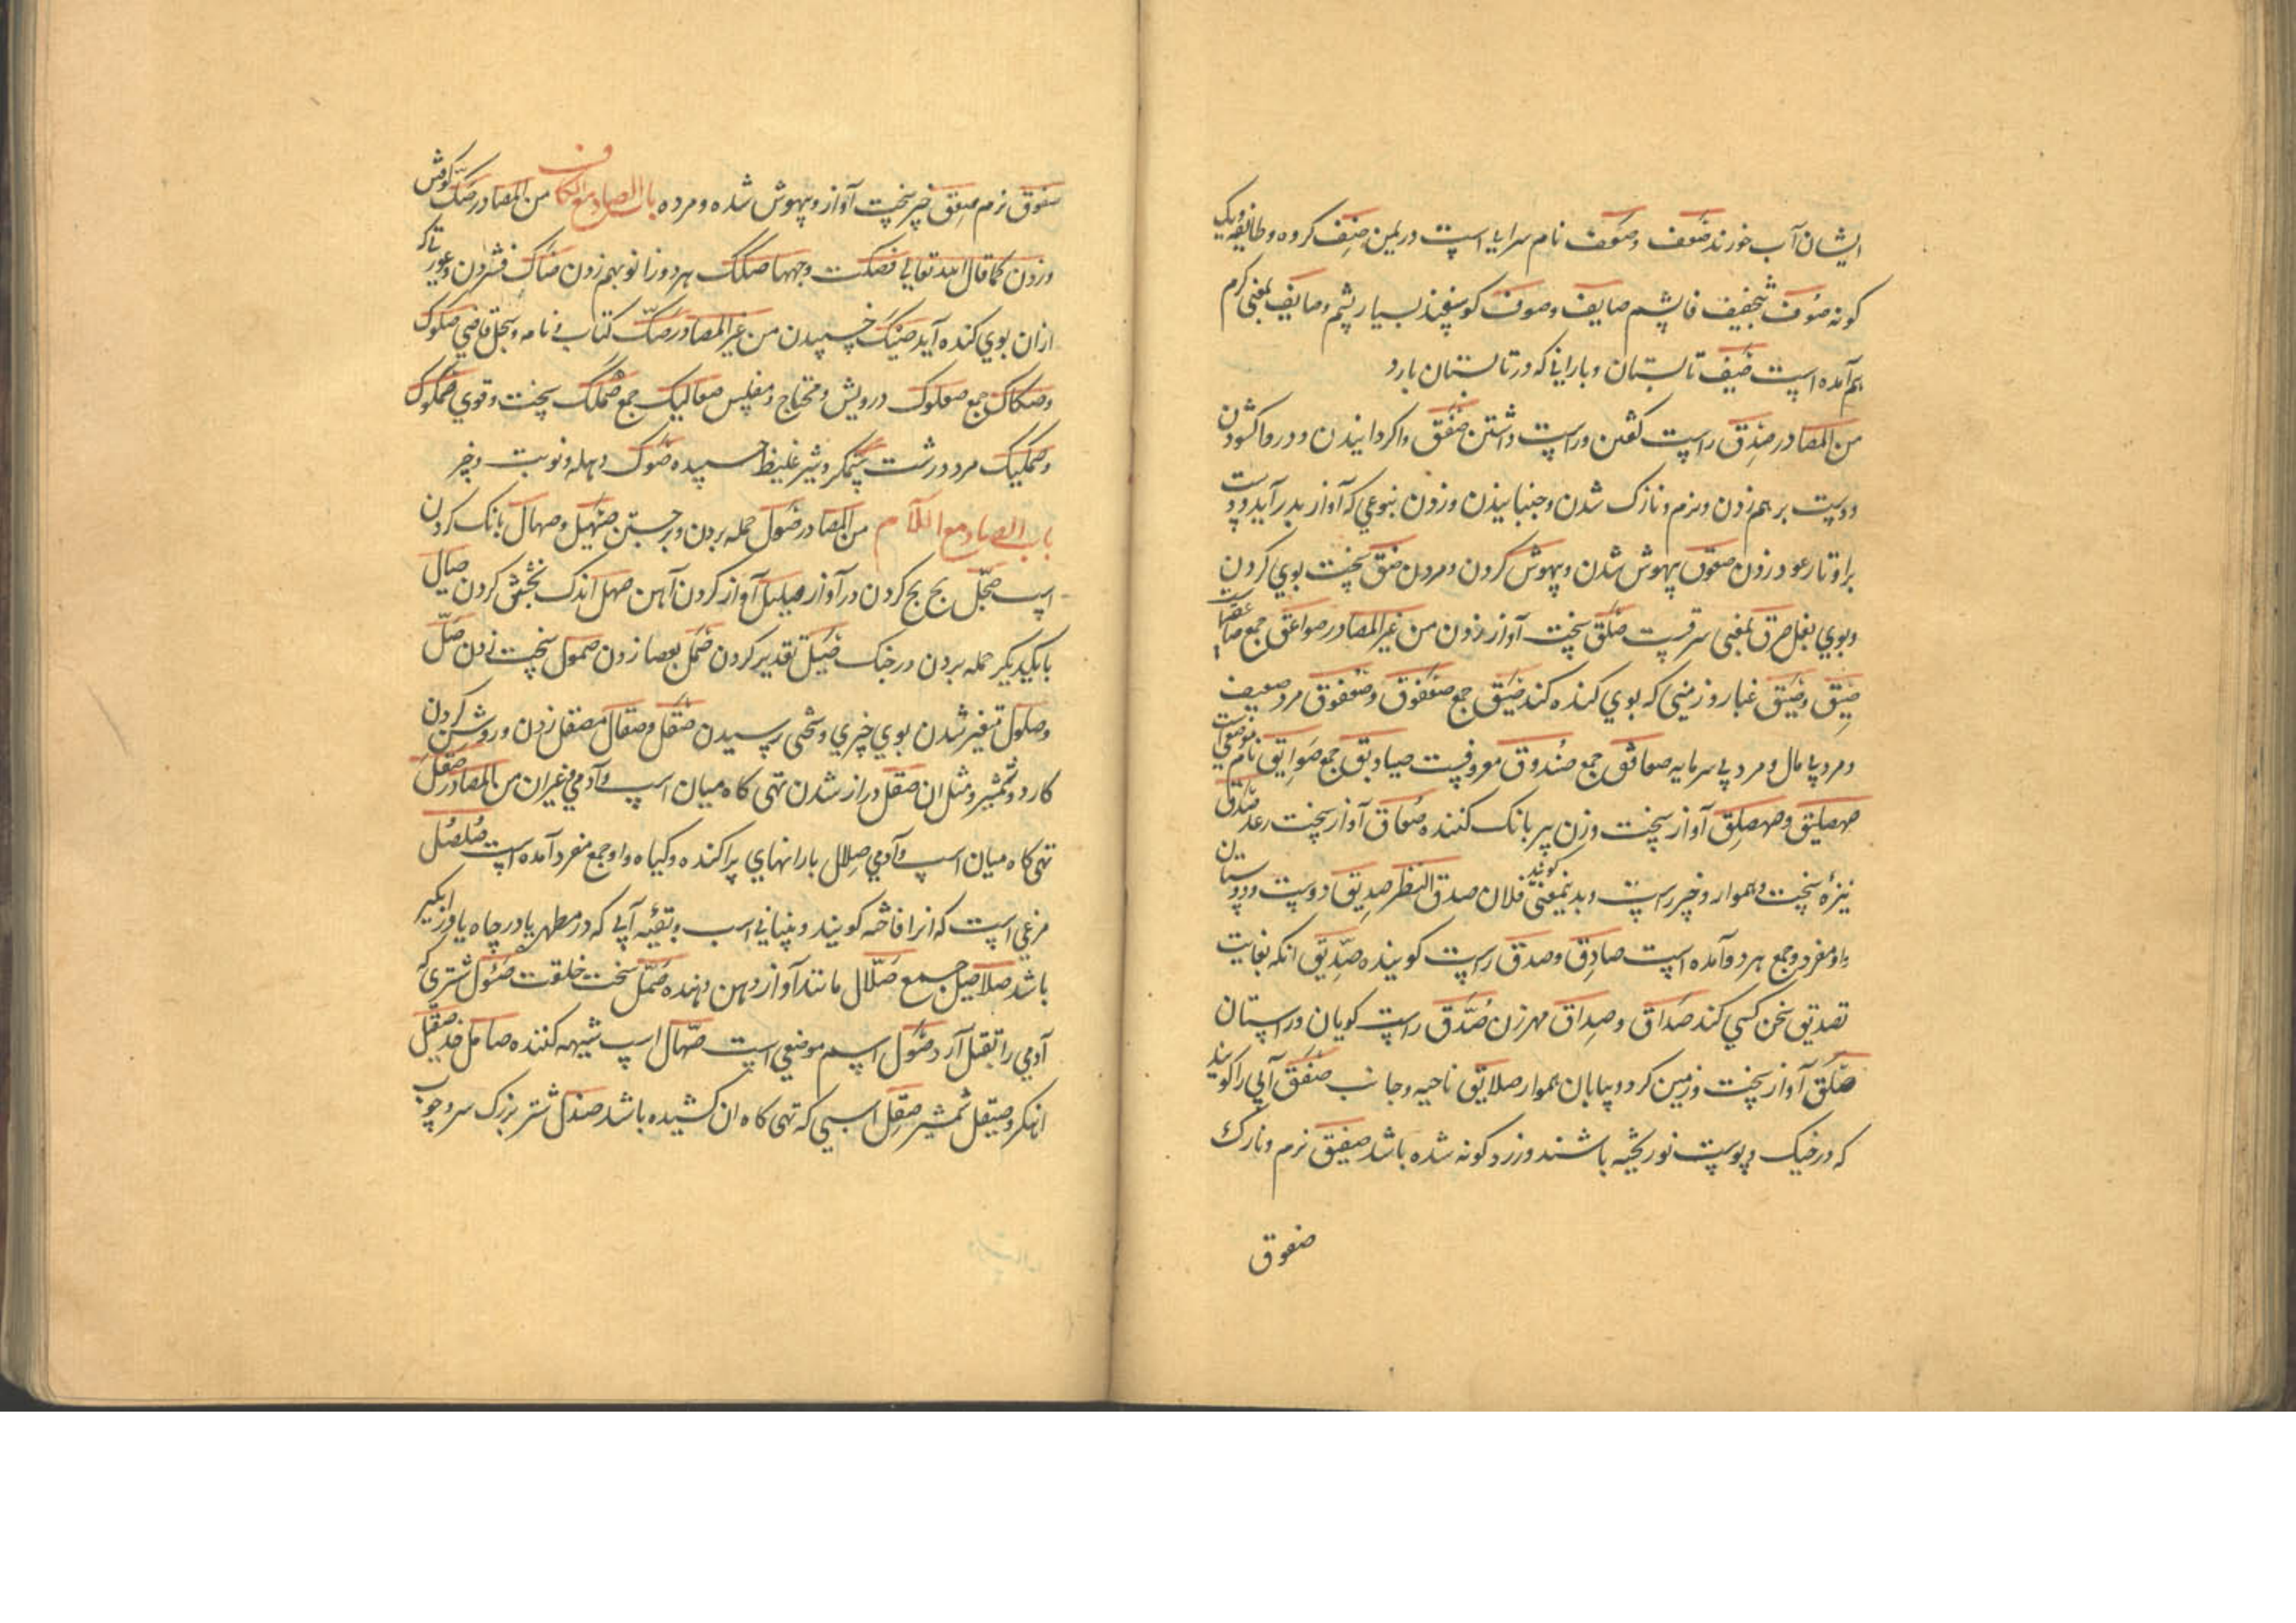 ایشان آب خورند صوف و صوف نام سرایا است در یمن صنف کروه و طایفه و یک
کونه صوف پشم صایف و صوف کوسفند بسیار پشم و صایف بمعنی کرم
هم آمده است صیف تابستان و بارانی که در تابستان بارد
من المصادر صدق راست کفتن و راست داشتن صفق واکردانیدن و در واکشودن
و دست بر هم زدن و نرم و نازک شدن و جنبانیدن و زدن بنوعی که آواز بدر آید و دست
بر اوتار عود زدن صعوق بیهوش شدن و بیهوش کردن و مردن صئق سخت بوی کردن
و بوی بغل صرق بمعنی سرقست صلق سخت آواز زدن من غیر المصادر صواعق جمع صاعقه
صیق و صیق غبار و زمینی که بوی کنده کند صیق جمع صعفوق و صعفوق مرد ضعیف
و مرد پامال و مرد بی سرمایه صعافق جمع صندوق معروفست صنادیق جمع صوایق نام موضعی است
صهصلیق و صهصلق آواز سخت و زن پیر بانک کننده صعاق آواز سخت رعد صدق
نیزه سخت و هموار و خبر راست و بدینمعنی کویند فلان صدق النظر صدیق دوست و دوستان
و او مفرد و جمع هر دو آمده است صادق و صدق راست کوینده صدیق انکه بغایت
تصدیق سخن کسی کند صداق و صداق مهر زن صدق راست کویان و راستان
صلق آواز سخت و زمین کرد و بیابان هموار صلایق ناحیه و جانب صفق آبی را کویند
که در خیک و پوست نو ریخته باشند و زرد کونه شده باشد صفیق نرم و نازک
صفوق
صفوق نرم صعق خر سخت آواز و بیهوش شده و مرده باب الصاد مع الکاف من المصادر صک کوفتن
و زدن کما قال الله تعالی فصکت وجهها صکک هر دو زانو بهم زدن صئاک فشردن و عود تا که
ازان بوی کنده آید صئیک چسپیدن من غیر المصادر صک کتاب نامه و سجل قاضی صکوک
و صکاک جمع صعلوک درویش و محتاج و مفلس صعالیک جمع صملک سخت و قوی صمکوک
و صمکیک مرد درشت ستمکر و شیر غلیظ چسپیده صوک دهله و نوبت و چر
باب الصاد مع اللام من المصادر صول حمله بردن و برجستن صهیل و صهال بانک کردن
اسب صحل بح بح کردن در آواز صلیل آواز کردن آهن صهل اندک بخشش کردن صیال
با یکدیکر حمله بردن در جنک صیل تقدیر کردن صمل بعصا زدن صمول سخت زدن صل
و صلول متغیر شدن بوی چیزی و سختی رسیدن صقل و صقال مصقل زدن و روشن کردن
کارد و شمشیر و مثل ان صقل دراز شدن تهی کاه میان اسب و آدمی و غیران من المصادر صقل
تهی کاه میان اسب و آدمی صلال بارانهای پراکنده و کیاه و او جمع مفرد آمده است صلصل
مرغی است که انرا فاخته کویند و پیشانی اسب و بقیه آبی که در مطهر یا در چاه یا در آبکیر
باشد صلاصیل جمع صلال مانند آواز دهن دهنده صمل سخت خلقت صؤل شتری که
آدمی را بقتل آرد صول اسم موضعی است صهال اسب شیهه کننده صامل خد صیقل
آهنکر و صیقل شمشیر صقل اسبی که تهی کاه ان کشیده باشد صندل شتر بزرک سر و چوب